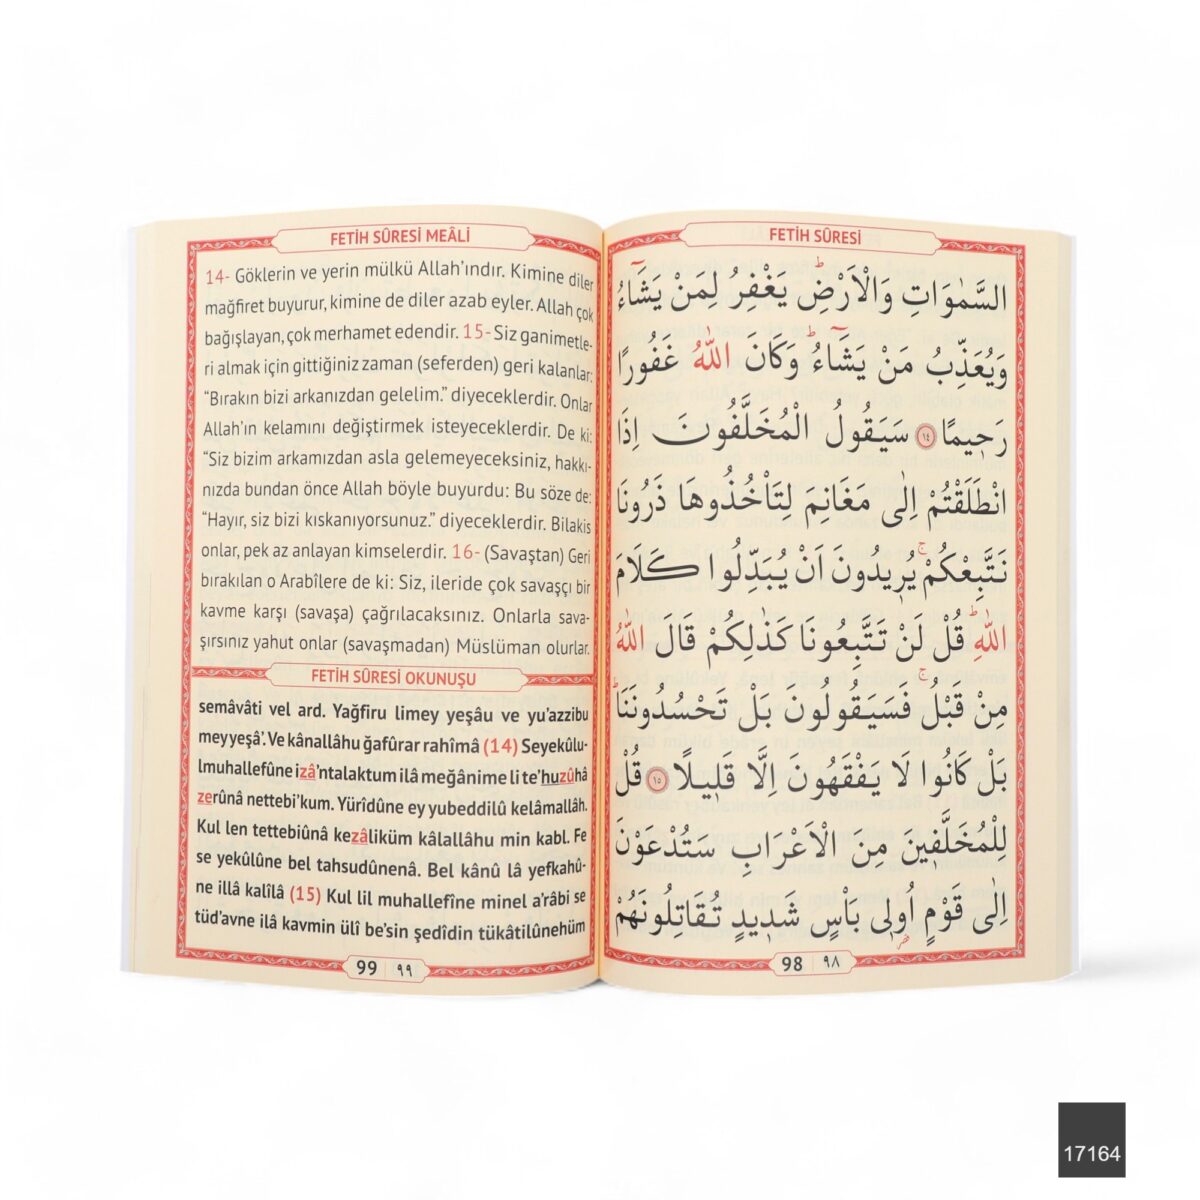 FETİH SÛRESİ MEÂLİ
14- Göklerin ve yerin mülkü Allah’ındır. Kimine diler
mağfiret buyurur, kimine de diler azab eyler. Allah çok
bağışlayan, çok merhamet edendir. 15- Siz ganimetle-
ri almak için gittiğiniz zaman (seferden) geri kalanlar:
“Bırakın bizi arkanızdan gelelim.” diyeceklerdir. Onlar
Allah’ın kelamını değiştirmek isteyeceklerdir. De ki:
“Siz bizim arkamızdan asla gelemeyeceksiniz, hakkı-
nızda bundan önce Allah böyle buyurdu: Bu söze de:
“Hayır, siz bizi kıskanıyorsunuz.” diyeceklerdir. Bilakis
onlar, pek az anlayan kimselerdir. 16- (Savaştan) Geri
bırakılan o Arabîlere de ki: Siz, ileride çok savaşçı bir
kavme karşı (savaşa) çağrılacaksınız. Onlarla sava-
şırsınız yahut onlar (savaşmadan) Müslüman olurlar.
FETİH SÛRESİ OKUNUŞU
semâvâti vel ard. Yağfiru limey yeşâu ve yu’azzibu
mey yeşâ’. Ve kânallâhu ğafûrar rahîmâ (14) Seyekûlu-
lmuhallefûne izâ’ntalaktum ilâ meğânime li te’huzûhâ
zerûnâ nettebi’kum. Yürîdûne ey yubeddilû kelâmallâh.
Kul len tettebiûnâ kezâliküm kâlallâhu min kabl. Fe
se yekûlûne bel tahsudûnenâ. Bel kânû lâ yefkahû-
ne illâ kalîlâ (15) Kul lil muhallefîne minel a’râbi se
tüd’avne ilâ kavmin üli be’sin şedîdin tükâtilûnehüm
99 ٩٩
FETİH SÛRESİ
السَّمٰوَاتِ وَالْاَرْضِۜ يَغْفِرُ لِمَنْ يَشَٓاءُ
وَيُعَذِّبُ مَنْ يَشَٓاءُۜ وَكَانَ اللّٰهُ غَفُورًا
رَح۪يمًا ١٤ سَيَقُولُ الْمُخَلَّفُونَ اِذَا
انْطَلَقْتُمْ اِلٰى مَغَانِمَ لِتَأْخُذُوهَا ذَرُونَا
نَتَّبِعْكُمْۚ يُر۪يدُونَ اَنْ يُبَدِّلُوا كَلَامَ
اللّٰهِۜ قُلْ لَنْ تَتَّبِعُونَا كَذٰلِكُمْ قَالَ اللّٰهُ
مِنْ قَبْلُۚ فَسَيَقُولُونَ بَلْ تَحْسُدُونَنَاۜ
بَلْ كَانُوا لَا يَفْقَهُونَ اِلَّا قَل۪يلًا ١٥ قُلْ
لِلْمُخَلَّف۪ينَ مِنَ الْاَعْرَابِ سَتُدْعَوْنَ
اِلٰى قَوْمٍ اُو۬ل۪ي بَأْسٍ شَد۪يدٍ تُقَاتِلُونَهُمْ
98 ٩٨
17164